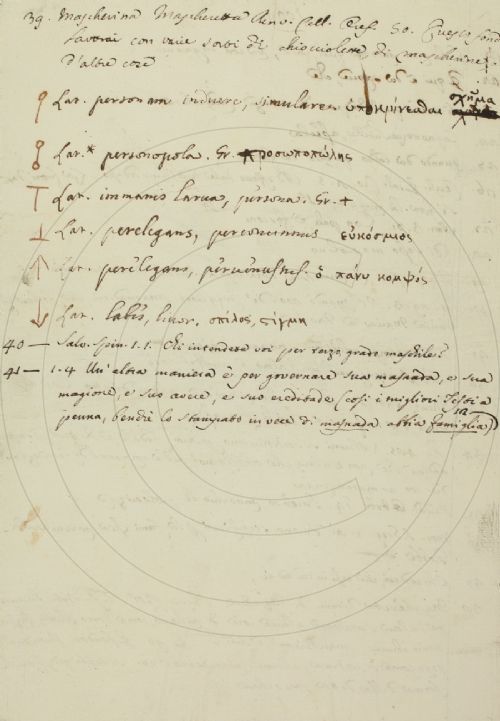 39. Mascherina Mascheretta Benv. Cell. Oref. 50. Questi fond
lavorai con varie sorti di chiocciolette, di mascherine,
d'altre cose
Lat. personam induere, simulare ὑποκρίνεσθαι σχῆμα
Lat.* personsmola. Gr. προσωποπώλης
Lat. immanis larva, persona. Gr. +
Lat. perelegans, perconcinnus εὐκόσμιος
Lat. perelegans, pervenustus. ὁ πάνυ κομψός
Lat. labes, livor. σπίλος, στίγμη
40 — Salv. Spin. 1. 1. Chi intendete voi per terzo grado maschile?
41 — 1. 4 Un' altra maniera è per governare sua masnada, e sua
magione, e suo avere, e suo ereditade (così i migliori Testi a
penna, benchè lo stampato in vece di masnada abbia famiglia)